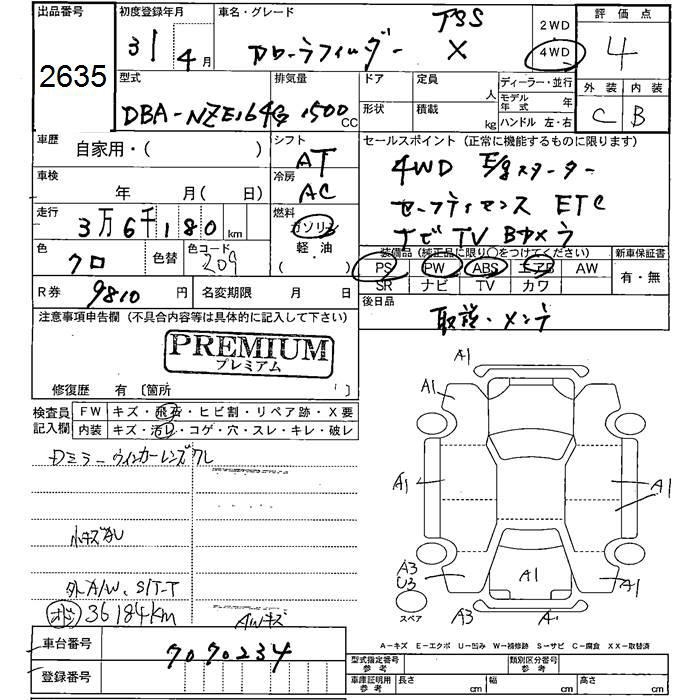 出品番号 初度登録年月 車名・グレード 評価点
2635 31 4月 カローラフィールダー TSS X 2WD 4WD 4
外装 内装
C B
型式 排気量 ドア 定員 人 ディーラー・並行
DBA-NZE164G 1500 CC 形状 積載 kg モデル年式 年
ハンドル 左・右
車歴 自家用・( ) シフト AT セールスポイント (正常に機能するものに限ります)
車検 年 月( 日) 冷房 AC 4WD E/gスターター
走行 3万6千180km 燃料 ガソリン 軽・油 ( ) セーフティセンス ETC
ナビ TV Bカメラ
色 クロ 色替 色コード 209 装備品 (純正品に限り○をつけてください) 新車保証書
PS PW ABS エアB AW 有・無
SR ナビ TV カワ
R券 9810円 名変期限 月 日 後日品
取説・メンテ
注意事項申告欄 (不具合内容等は具体的に記入して下さい)
PREMIUM
プレミアム
修復歴 有 〔箇所 〕
検査員記入欄 FW キズ・飛石・ヒビ割・リペア跡・X要
内装 キズ・汚レ・コゲ・穴・スレ・キレ・破レ
Dミラーウィンカーレンズワレ
小キズAU
外A/W、S/T-T
36184km
AWキズ
A1
A1
A1
A1
A1
A3
U3
A1
A1
スペア
A3
A
車台番号 7070234
登録番号
A-キズ E-エクボ U-凹み W-補修跡 S-サビ C-腐食 XX-取替済
型式指定番号 参考 類別区分番号 参考
車庫証明用 参考 長さ cm 幅 cm 高さ cm